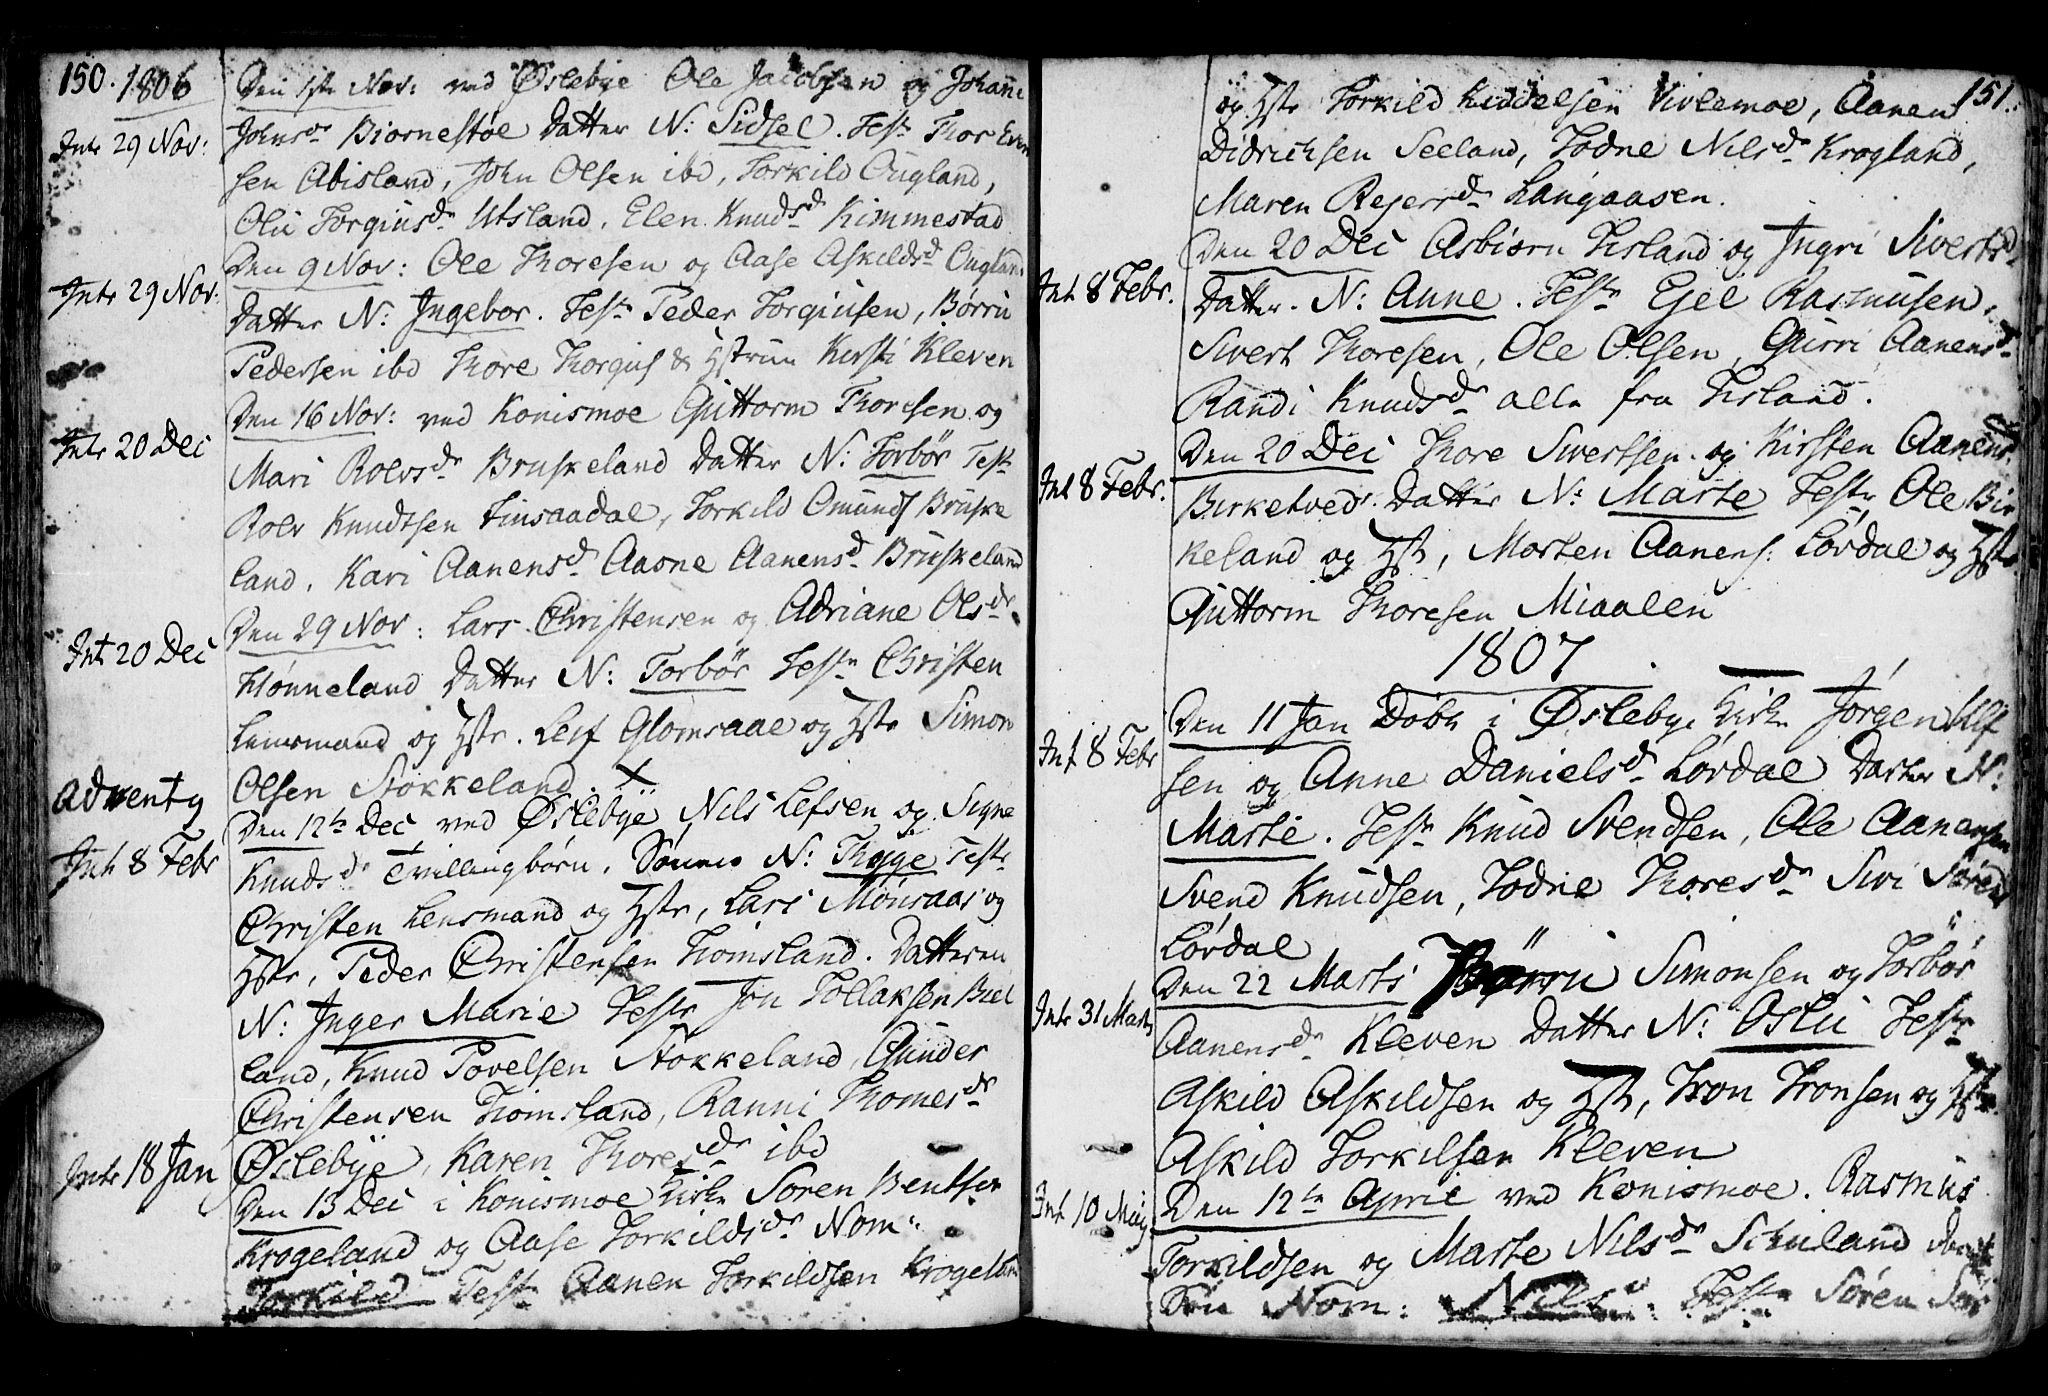 150. 1806
Den 1ste Nov: ved Øslebye Ole Jacobsen og Johane
Intr 29 Nov:
Johnsdr Biornestøe Datter N: Sidsel. Testr Thor Even
sen Abisland, John Olsen ibd, Torkild Ougland,
Olu Torgiusdr Utsland. Elen Knudsdr Kimmestad
Den 9 Nov: Ole Thoresen og Aase Askildsd Ougland
Intr 29 Nov:
Datter N: Ingebor. Testr Peder Torgiusen, Børru
Pedersen ibd Thore Thorgius & Hstru Kirsti Kleven
Den 16 Nov: ved Konismoe Guttorm Thoresen og
Intr 20 Dec
Mari Rolvsdr Bruskeland Datter N: Torbør Testr
Rolv Knudtsen Finsaadal, Torkild Omunds Bruske
land, Kari Aanensd Aasne Aanensd Bruskeland
Den 29 Nov: Lars Christensen og Adriane Olsdr
Int 20 Dec
Hønneland Datter N: Torbør Testr Christen
Lensmand og Hstr. Leif Glomsaae og Hstr Simon
Olsen Stokkeland
Adventy
Den 12te Dec ved Øslebye Nils Lefsen og Signe
Intr 8 Febr
Knudsdr Tvillingbørn. Sønnen N: Thyge Testr
Christen Lensmand og Hstr, Lars Mönsaas og
Hstr, Peder Christensen Homsland. Datteren
N: Inger Marie Testr Jon Tollaksen Bue
land, Knud Povelsen Stokkeland, Gunder
Christensen Homsland, Ranni Thomesdr
Øslebye, Karen Thoresdr ibd
Intr 18 Jan
Den 13 Dec i Konismoe Kirke Søren Bentsen
Krogeland og Aase Torkildsdr Nom:
Torkild Testr Aanen Torkildsen Krogeland
151.
og Hstr Torkild Kiddelsen Vivlemoe, Aanen
Didrichsen Seeland, Todne Nilsdr Krogland,
Maren Rejersdr Langaasen.
Den 20 Dec Asbiørn Tisland og Ingri Sivertsd
Int 8 Febr.
Datter. N: Anne. Testr Ejel Rasmusen,
Sivert Thoresen, Ole Olsen, Gurri Aanensdr
Randi Knudsdr alle fra Tisland.
Den 20 Dec Thore Sivertsen og Kirsten Aanensd
Int 8 Febr.
Birketvedt Datter N: Marte Testr Ole Bir
keland og Hstr, Morten Aanens: Lørdal og Hstr
Guttorm Thoresen Miaalen
1807
Den 11 Jan Døbt i Øslebye Kirke Jørgen Ulf
Int 8 Febr
sen og Anne Danielsdr Lørdal Datter N:
Marte. Testr Knud Svendsen, Ole Aanensen
Svend Knudsen, Todne Thoresdr Sivi Sørensd
Lørdal
Den 22 Marts Børru Simonsen og Torbør
Intr 31 Marts
Aanensdr Kleven Datter N: Oslu Testr
Askild Askildsen og Hstr, Tron Tronsen og Hstr
Askild Torkilsen Kleven
Den 12te April ved Konismoe. Rasmus
Int 10 Maij
Torkildsen og Marte Nilsdr Schuland
Søn Nom: Nils: Testr Søren